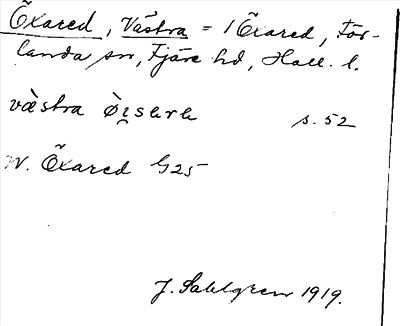 Öxared, Västra = 1 Öxared, För-
landa sn, Fjäre hd, Hall. l.
væ̀stra s. 52
V. Öxared G25
J. Sahlgren 1919.